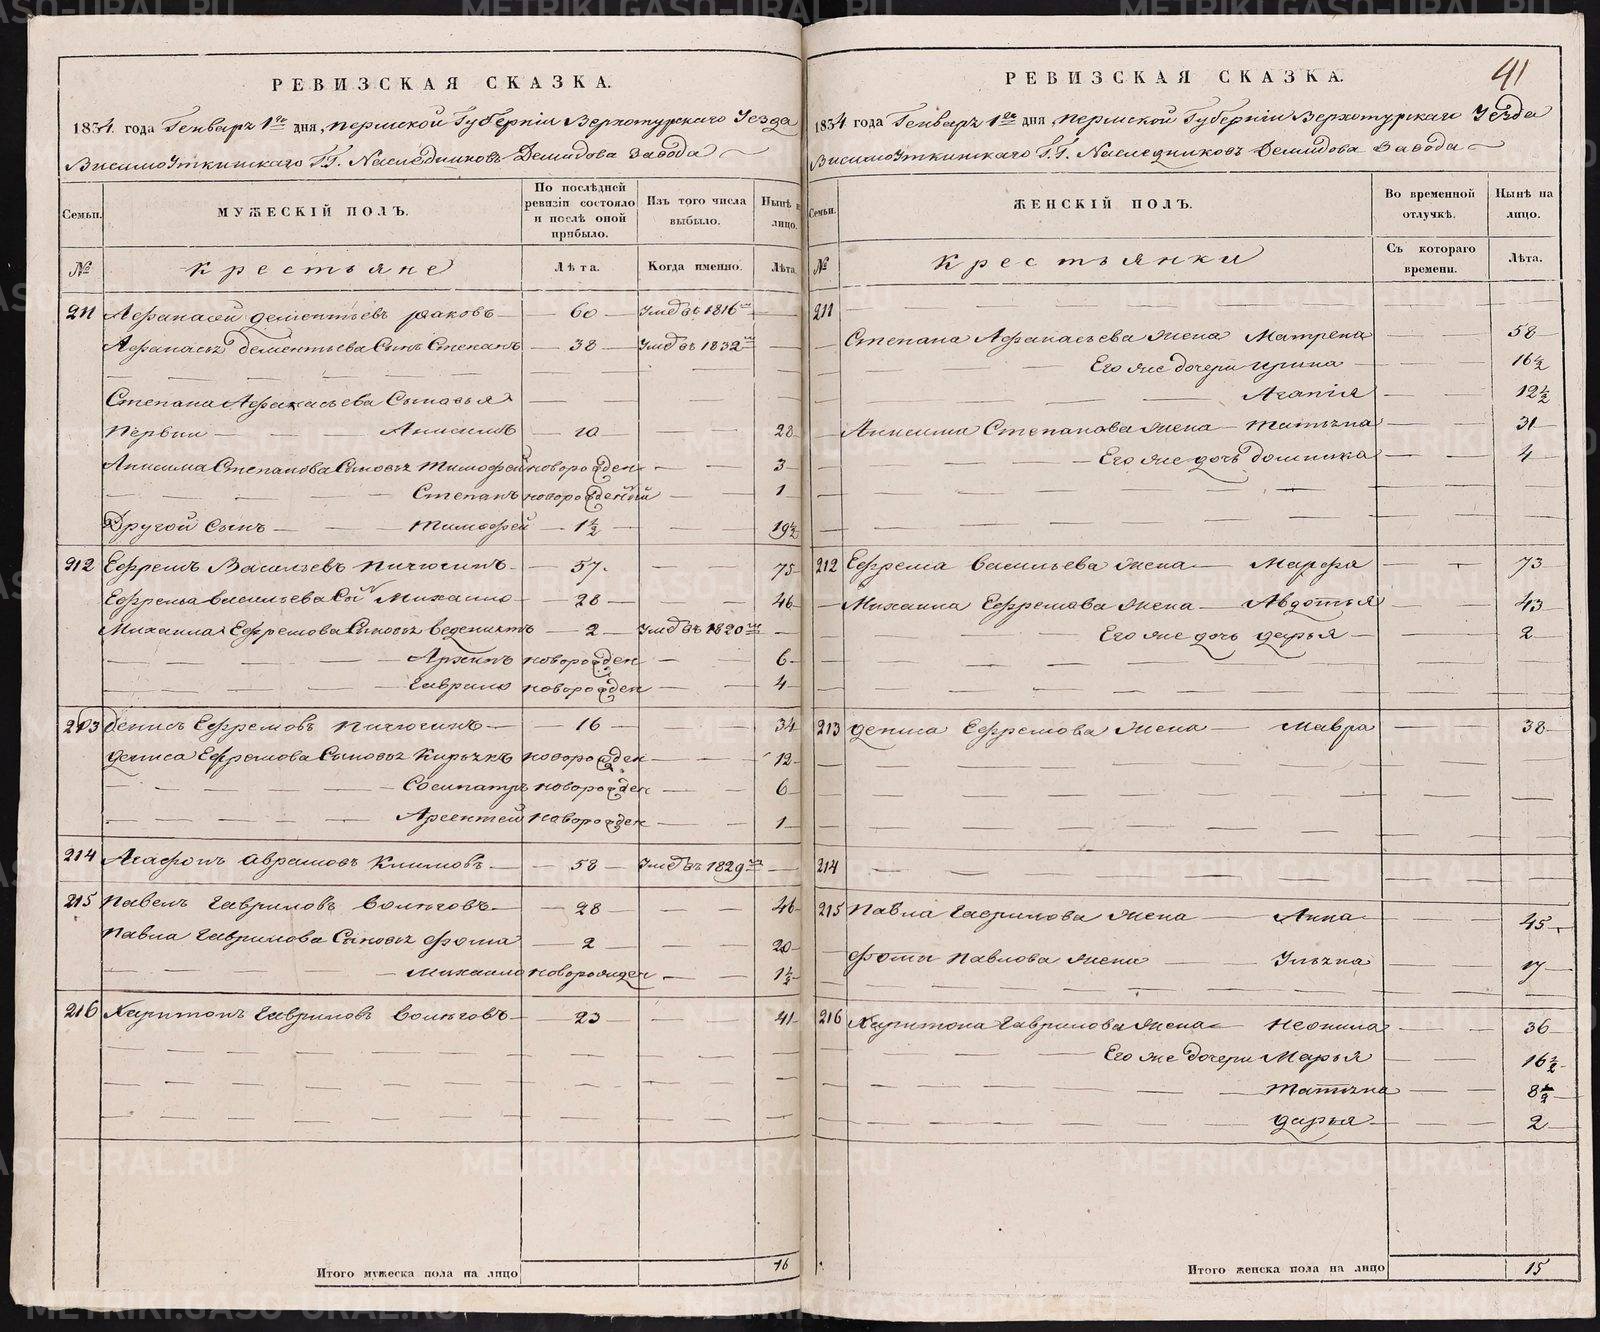 РЕВИЗСКАЯ СКАЗКА.
1834 года Генваря 1го дня, Пермской Губерніи Верхотурскаго Уезда
ВисимоУткинскаго Г.Г. Наследниковъ Демидова завода
Семьи.
МУЖЕСКІЙ ПОЛЪ.
По послѣдней ревизіи состояло и послѣ оной прибыло.
Изъ того числа выбыло.
Нынѣ на лицо.
№
Крестьяне
Лѣта.
Когда именно.
Лѣта.
211 Афанасей Дементьевъ Раковъ 60 Умеръ въ 1816м
Афанасья Дементьева Сынъ Степанъ 38 Умеръ въ 1832м
Степана Афанасьева Сыновья
Первый Анисимъ 10 28
Анисима Степанова Сыновья Тимофей новорожден 3
Степанъ новорожденный 1
Другой Сынъ Тимофей 1½ 19½
212 Ефремъ Васильевъ Пичюгинъ 57 75
Ефрема Васильева Сынъ Михаило 28 46
Михаила Ефремова Сыновья Веденихтъ 2 Умеръ въ 1820м
Архипъ новорожден 6
Гаврило новорожден 4
213 Денисъ Ефремовъ Пичюгинъ 16 34
Дениса Ефремова Сыновья Кирьякъ новорожден 12
Сосипатръ новорожден 6
Арсентей новорожден 1
214 Агафонъ Аврамовъ Климовъ 58 Умеръ въ 1829м
215 Павелъ Гавриловъ Волеговъ 28 46
Павла Гаврилова Сыновья Фома 2 20
Михаило новорожден 1½
216 Харитонъ Гавриловъ Волеговъ 23 41
Итого мужеска пола на лицо 16
41
РЕВИЗСКАЯ СКАЗКА.
1834 года Генваря 1го дня, Пермской Губерніи Верхотурскаго Уезда
ВисимоУткинскаго Г.Г. Наследниковъ Демидова завода
Семьи.
ЖЕНСКІЙ ПОЛЪ.
Во временной отлучкѣ.
Нынѣ на лицо.
№
Крестьянки
Съ котораго времени.
Лѣта.
211
Степана Афанасьева жена Матрена 58
Его же дочери Ирина 16½
Агапія 12½
Анисима Степанова жена Татьяна 31
Его же дочь Домника 4
212 Ефрема Васильева жена Марфа 73
Михаила Ефремова жена Авдотья 43
Его же дочь Дарья 2
213 Дениса Ефремова жена Мавра 38
214
215 Павла Гаврилова жена Анна 45
Фомы Павлова жена Ульяна 17
216 Харитона Гаврилова жена Неонила 36
Его же дочери Марья 16½
Татьяна 8½
Дарья 2
Итого женска пола на лицо 15
METRIKI.GASO-URAL.RU